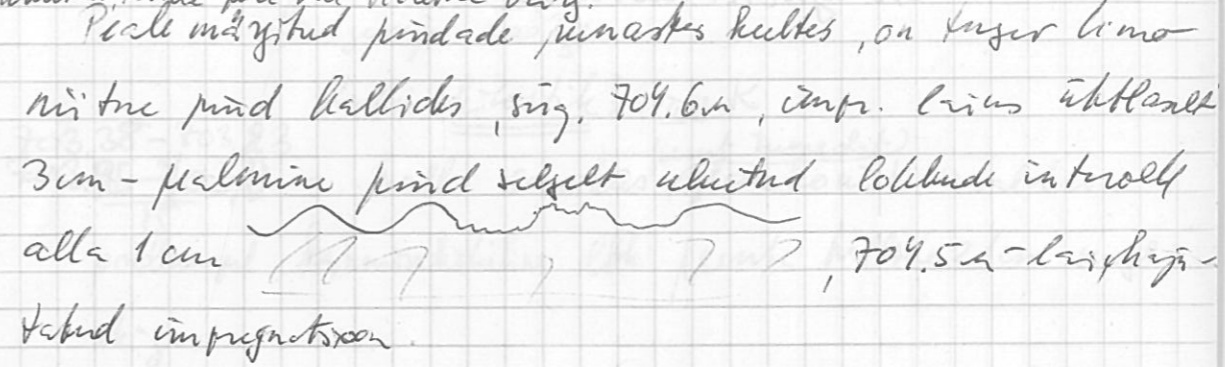 Peale märgitud pindade punastes kultes, on tugev limo-
niitne pind hallides, süg. 704.6m, impr. laius ühtlaselt
3cm - pealmine pind selgelt uhutud lohkude intervall
alla 1 cm , 704.5m - laiahaju-
tatud impregnatsioon.